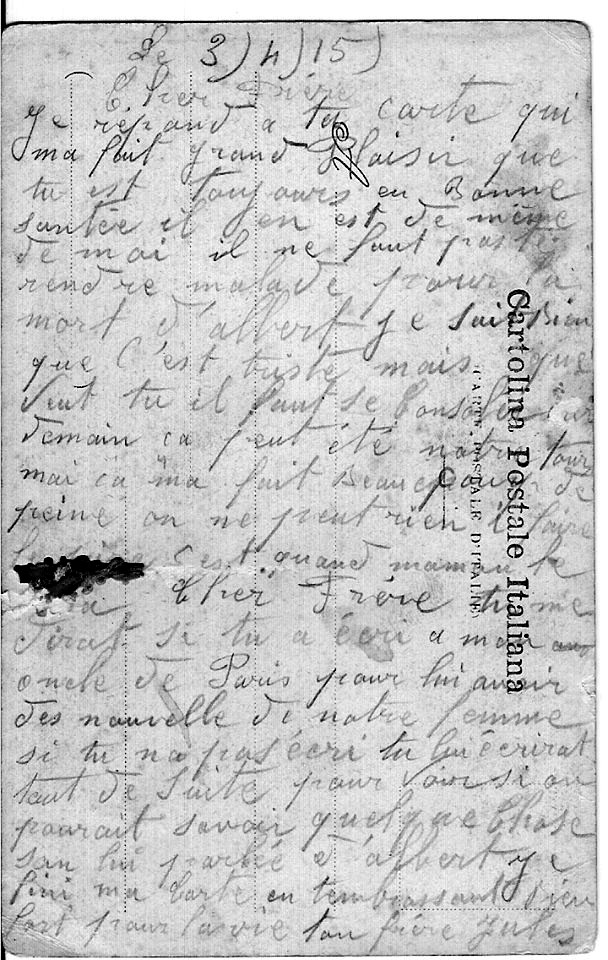 Le 3)4)15)
Cher Frère
Je répand a ta carte qui
ma fait grand Plaisir que
tu est toujours en Bonne
santée il en est de même
de moi il ne faut pas te
rendre malade pour la
mort d'albert je sait Bien
que C'est triste mais que
Veut tu il faut se Consoler
demain ca peut été notre tour
moi ca ma fait Beaucoup de
peine on ne peut rien i faire
C'est quand maman le
Cher Frère tu me
dirat si tu a écri a mon
oncle de Paris pour lui avoir
des nouvelle de notre femme
si tu na pas écri tu lui écrirat
tout de suite pour voir si on
pourait savoir quelque Chose
san lui parlée d'albert je
fini ma Carte en tembrassant Bien
fort pour la vie ton frère Jules
Cartolina Postale Italiana
(CARTE POSTALE D'ITALIE)